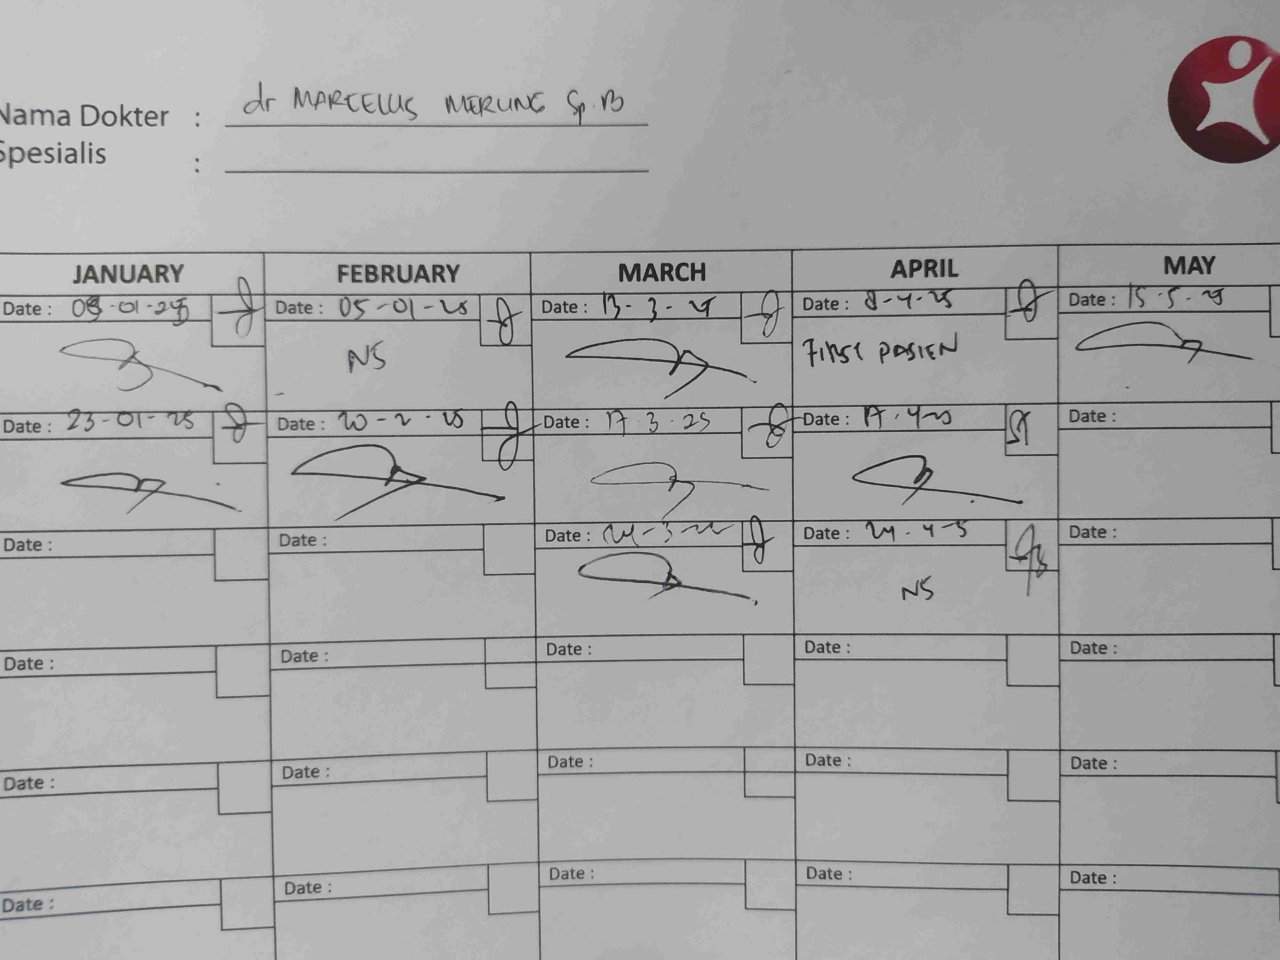 Nama Dokter : dr MARCELUS MERUNG Sp.B
Spesialis :
JANUARY FEBRUARY MARCH APRIL MAY
Date : 09-01-25 Date : 05-01-25 Date : 13-3-25 Date : 8-4-25 Date : 15-5-25
NS FIRST PASIEN
Date : 23-01-25 Date : 20-2-25 Date : 17.3.25 Date : 17.4-25 Date :
Date : Date : Date : 24-3-25 Date : 24.4-5 Date :
NS
Date : Date : Date : Date : Date :
Date : Date : Date : Date : Date :
Date : Date : Date : Date : Date :